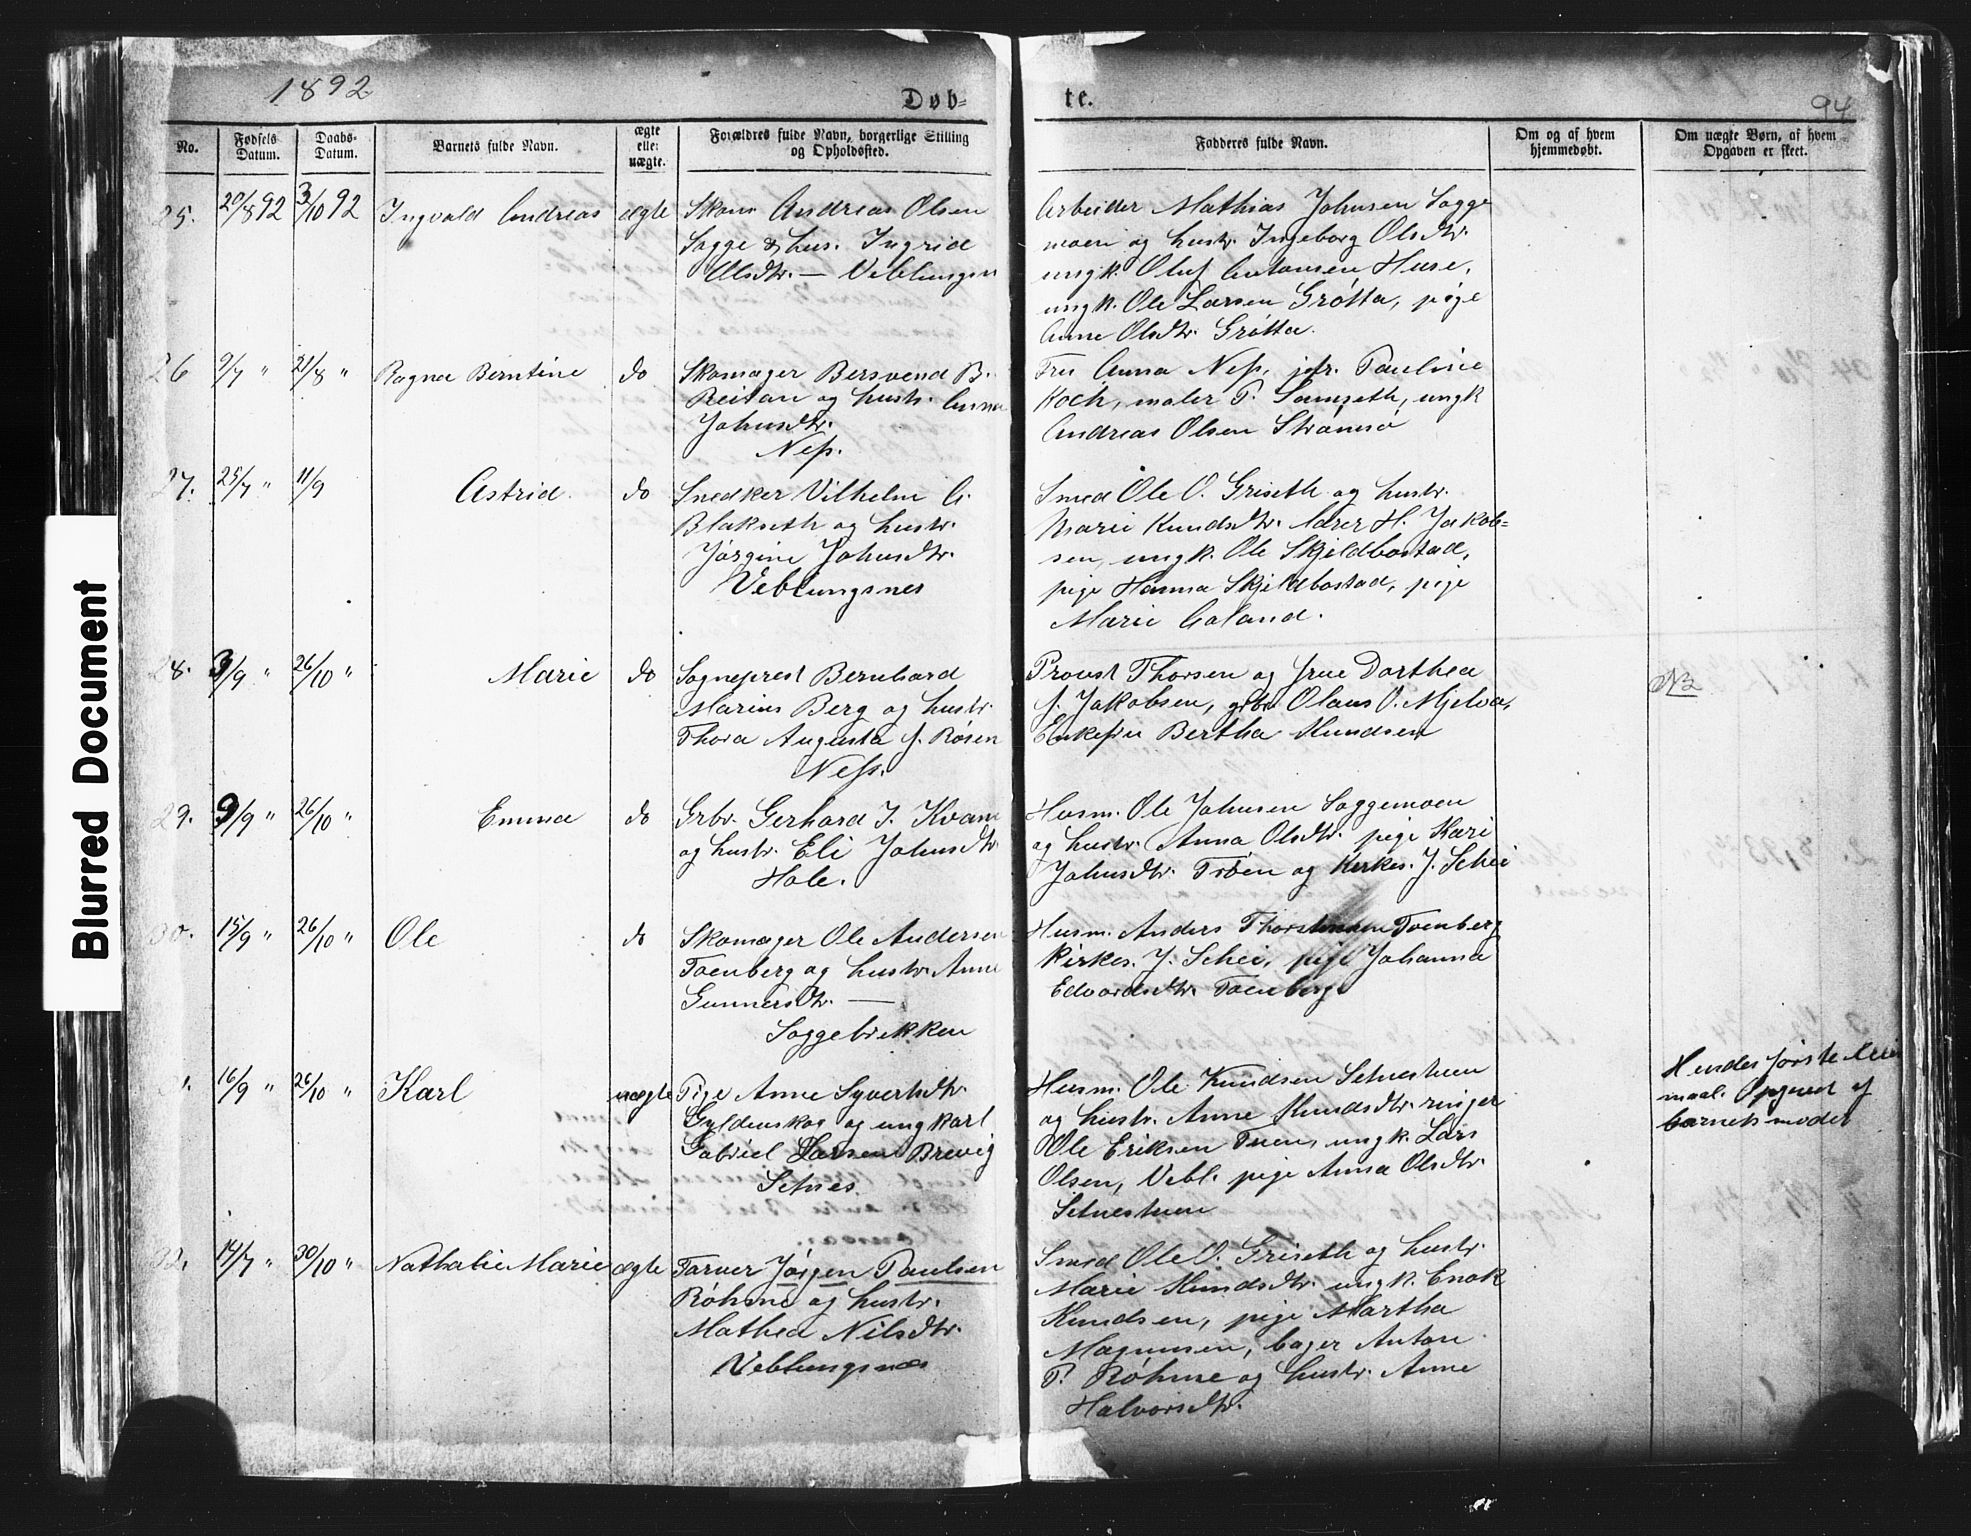 1892
Døb=
te.
94
No.
Fødsels
Datum.
Daabs-
Datum.
Barnets fulde Navn.
ægte
eller
uægte.
Forældres fulde Navn, borgerlige Stilling
og Opholdssted.
Fadderes fulde Navn.
Om og af hvem
hjemmedøbt.
Om uægte Børn, af hvem
Opgaven er skeet.
25. 20/8 92 3/10 92 Ingvald Andreas ægte
Skom. Andreas Olsen
Sogge & hus. Ingrid
Olsdtr. — Veblungsn
Arbeider Mathias Johnsen Sogge
moen og hustr. Ingeborg Olsdtr.
ungk. Oluf Antonsen Huse,
ungk. Ole Larsen Grøtta, pige
Anne Olsdtr. Grøtta.
26 9/7 " 21/8 " Ragna Berntine do
Skomager Bersvend B.
Reitan og hustr. Anna
Johnsdtr.
Neſs.
Fru Anna Neſs, jfr. Pauline
Koch, maler P. Samseth, ungk
Andreas Olsen Strømsø
27. 25/7 " 11/9 Astrid do
Snedker Vilhelm A.
Blakseth og hustr.
Jørgine Johnsdtr.
Veblungsnes
Smed Ole O. Griseth og hustr.
Marie Knudsdtr. lærer H. Jakob=
sen, ungk. Ole Skjeldbostad,
pige Hanna Skjeldbostad, pige
Marie Aaland.
28. 3/9 " 26/10 " Marie do
Sogneprest Bernhard
Marius Berg og hustr.
Thora Augusta f. Rosen
Neſs.
Provst Thorsen og frue Dorthea
f. Jakobsen, grbr. Olaus O. Mjelva,
Enkefru Bertha Knudsen
NB
29. 9/9 " 26/10 " Emma do
Grbr. Gerhard J. Kvam
og hustr. Eli Johnsdtr.
Hole.
Husm. Ole Johnsen Soggemoen
og hustr. Anna Olsdtr. pige Kari
Johnsdtr. Trøen og Kirkes. J. Schei
30. 15/9 " 26/10 " Ole do
Skomager Ole Andersen
Toenberg og hustr. Anne
Gunnersdtr. —
Soggebrekken
Husm. Anders Thorstensen Toenberg
Kirkes. J. Schei, pige Johanna
Edvardsdtr. Toenberg
16/9 " 26/10 " Karl uægte
Pige Anne Syvertsdtr.
Gyldenskog og ungkarl
Gabriel Larsen Brevig
Setnes.
Husm. Ole Knudsen Setnestuen
og hustr. Anne Knudsdtr. ringer
Ole Eriksen Tuen, ungk. Lars
Olsen, Vebl. pige Anna Olsdtr.
Setnestuen
Hendes første leier
maal. Opgivet af
barnets moder
32. 14/7 " 30/10 " Nathalie Marie ægte
Farver Jørgen Paulsen
Røhme og hustr.
Mathea Nilsdtr.
Veblungsnæs
Smed Ole O. Griseth og hustr.
Marie Knudsdtr. ungk. Enok
Knudsen, pige Martha
Magnusen, bager Anton
P. Røhme og hustr. Anne
Halvorsdtr.
Blurred Document